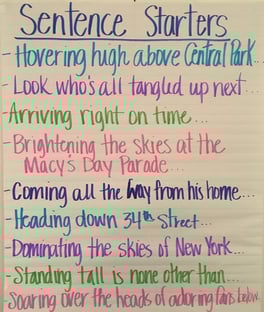 Sentence Starters
- Hovering high above Central Park...
- Look who's all tangled up next...
- Arriving right on time...
- Brightening the skies at the
Macy's Day Parade...
- Coming all the way from his home...
- Heading down 34th Street...
- Dominating the skies of New York...
- Standing tall is none other than...
- Soaring over the heads of adoring fans below...